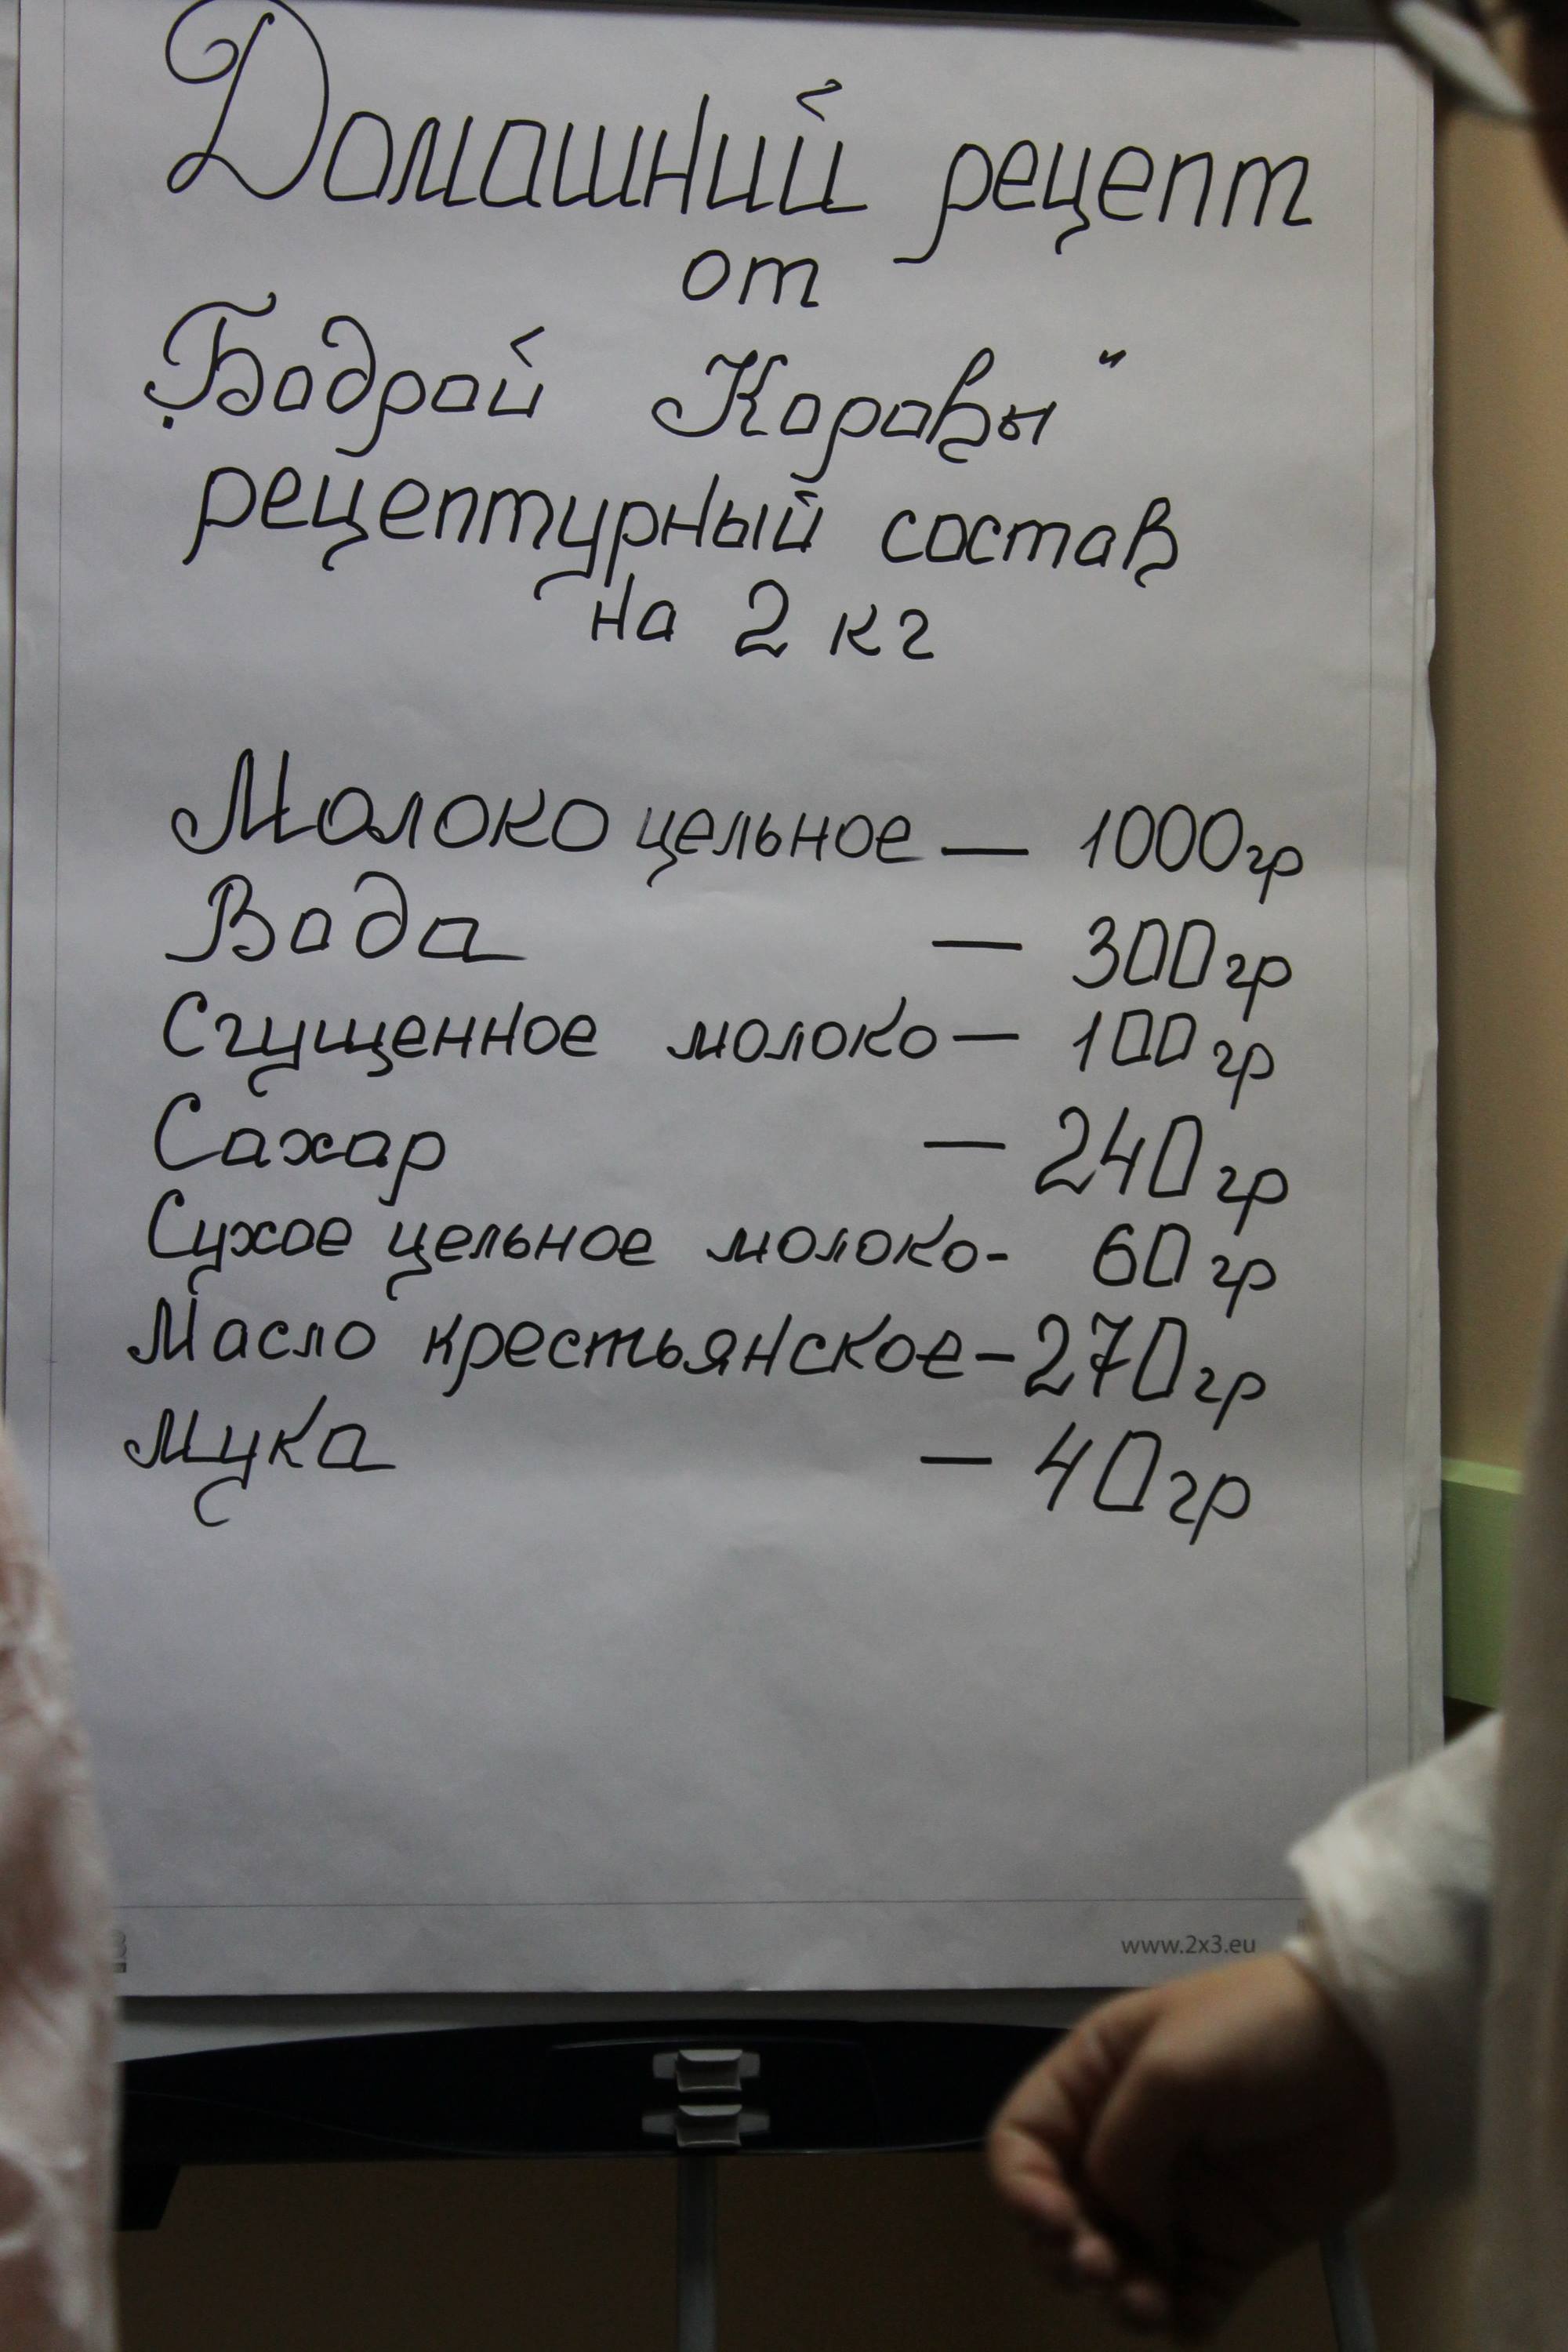 Домашний рецепт
от
„Бодрой Коровы"
рецептурный состав
на 2 кг
Молоко цельное — 1000гр
Вода — 300гр
Сгущенное молоко — 100гр
Сахар — 240гр
Сухое цельное молоко - 60гр
Масло крестьянское - 270гр
Мука — 40гр
www.2x3.eu